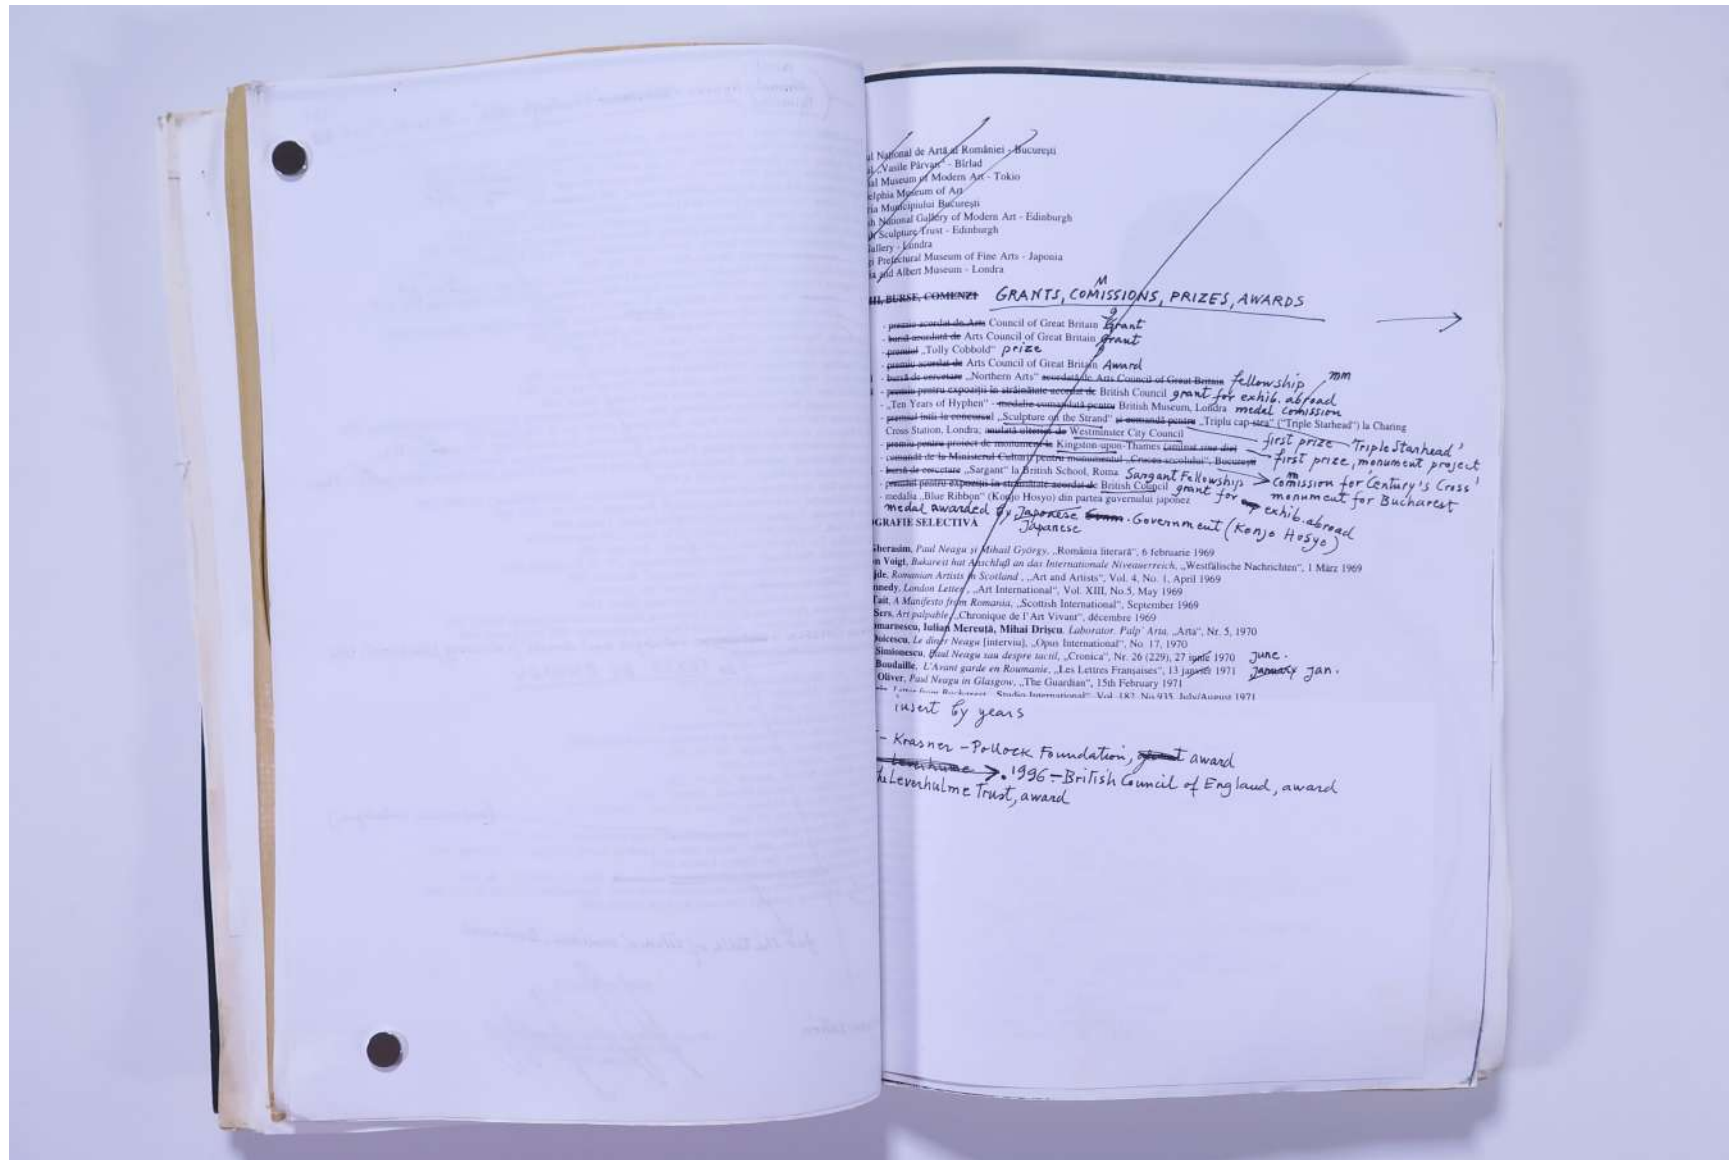 Național de Artă al României - București
„Vasile Pârvan" - Bîrlad
Museum of Modern Art - Tokio
Museum of Art
Municipiului București
National Gallery of Modern Art - Edinburgh
Sculpture Trust - Edinburgh
Gallery - Londra
Prefectural Museum of Fine Arts - Japonia
and Albert Museum - Londra
BURSE, COMENZI GRANTS, COMISSIONS, PRIZES, AWARDS
M
- premiu acordat de Arts Council of Great Britain Grant
g
- bursă acordată de Arts Council of Great Britain grant
- premiul „Tolly Cobbold" prize
- premiu acordat de Arts Council of Great Britain Award
- bursă de cercetare „Northern Arts" acordată de Arts Council of Great Britain fellowship mm
- premiu pentru expoziții în străinătate acordat de British Council grant for exhib. abroad
- „Ten Years of Hyphen" - medalie comandată pentru British Museum, Londra medal comission
- premiul întîi la concursul „Sculpture on the Strand" și comandă pentru „Triplu cap-stea" ("Triple Starhead") la Charing
Cross Station, Londra; anulată ulterior de Westminster City Council first prize 'Triple Starhead'
- premiu pentru proiect de monument la Kingston-upon-Thames first prize, monument project
- comandă de la Ministerul Culturii pentru monumentul „Crucea secolului", București
- bursă de cercetare „Sargant" la British School, Roma Sargant Fellowship comission for Century's Cross'
m
- premiul pentru expoziții în străinătate acordat de British Council grant for exhib. abroad monument for Bucharest
- medalia „Blue Ribbon" (Konjo Hosyo) din partea guvernului japonez
medal awarded by Japonese Government (Konjo Hosyo)
Japanese
OGRAFIE SELECTIVĂ
Gherasim, Paul Neagu și Mihail György, „România literară", 6 februarie 1969
Voigt, Bukarest hat Anschluß an das Internationale Niveau erreich, „Westfälische Nachrichten", 1 März 1969
Romanian Artists in Scotland , „Art and Artists", Vol. 4, No. 1, April 1969
London Letter , „Art International", Vol. XIII, No.5, May 1969
Tait, A Manifesto from Romania, „Scottish International", September 1969
Sers, Art palpable, „Chronique de l'Art Vivant", décembre 1969
Iulian Mereuță, Mihai Drișcu, Laborator. Palp' Arta, „Arta", Nr. 5, 1970
Le diner Neagu [interviu], „Opus International", No. 17, 1970
Simionescu, Paul Neagu sau despre tactil, „Cronica", Nr. 26 (229), 27 iunie 1970 June.
Boudaille, L'Avant garde en Roumanie, „Les Lettres Françaises", 13 janvier 1971 January Jan.
Oliver, Paul Neagu in Glasgow, „The Guardian", 15th February 1971
Letter from Bucharest, „Studio International", Vol. 182, No.935, July/August 1971
insert by years
- Krasner - Pollock Foundation, grant award
Leverhulme . 1996 - British Council of England, award
Leverhulme Trust, award